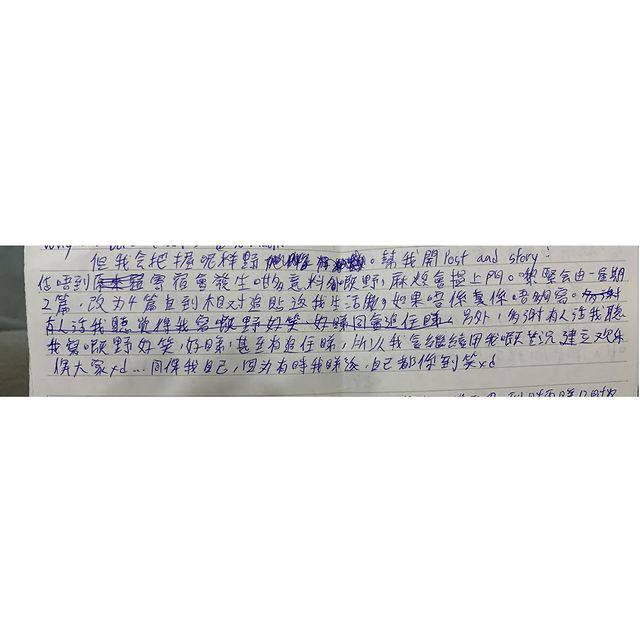 但我会把握呢样野。請我開Post and story!
估唔到寄宿會發生咁多意料外嘅野，麻煩會搵上門。嚟緊会由一星期
2篇，改为4篇直到相对追贴返我生活，如果唔係真係唔夠寫。多謝
有人话我聽覺得我寫嘅野好笑、好睇同會追住睇。另外，多謝有人话我聽
我寫嘅野好笑，好睇，甚至有追住睇，所以我會繼續用我嘅 建立欢乐
俾大家xd...同俾我自己，因为有時我睇返，自己都俾到笑xd